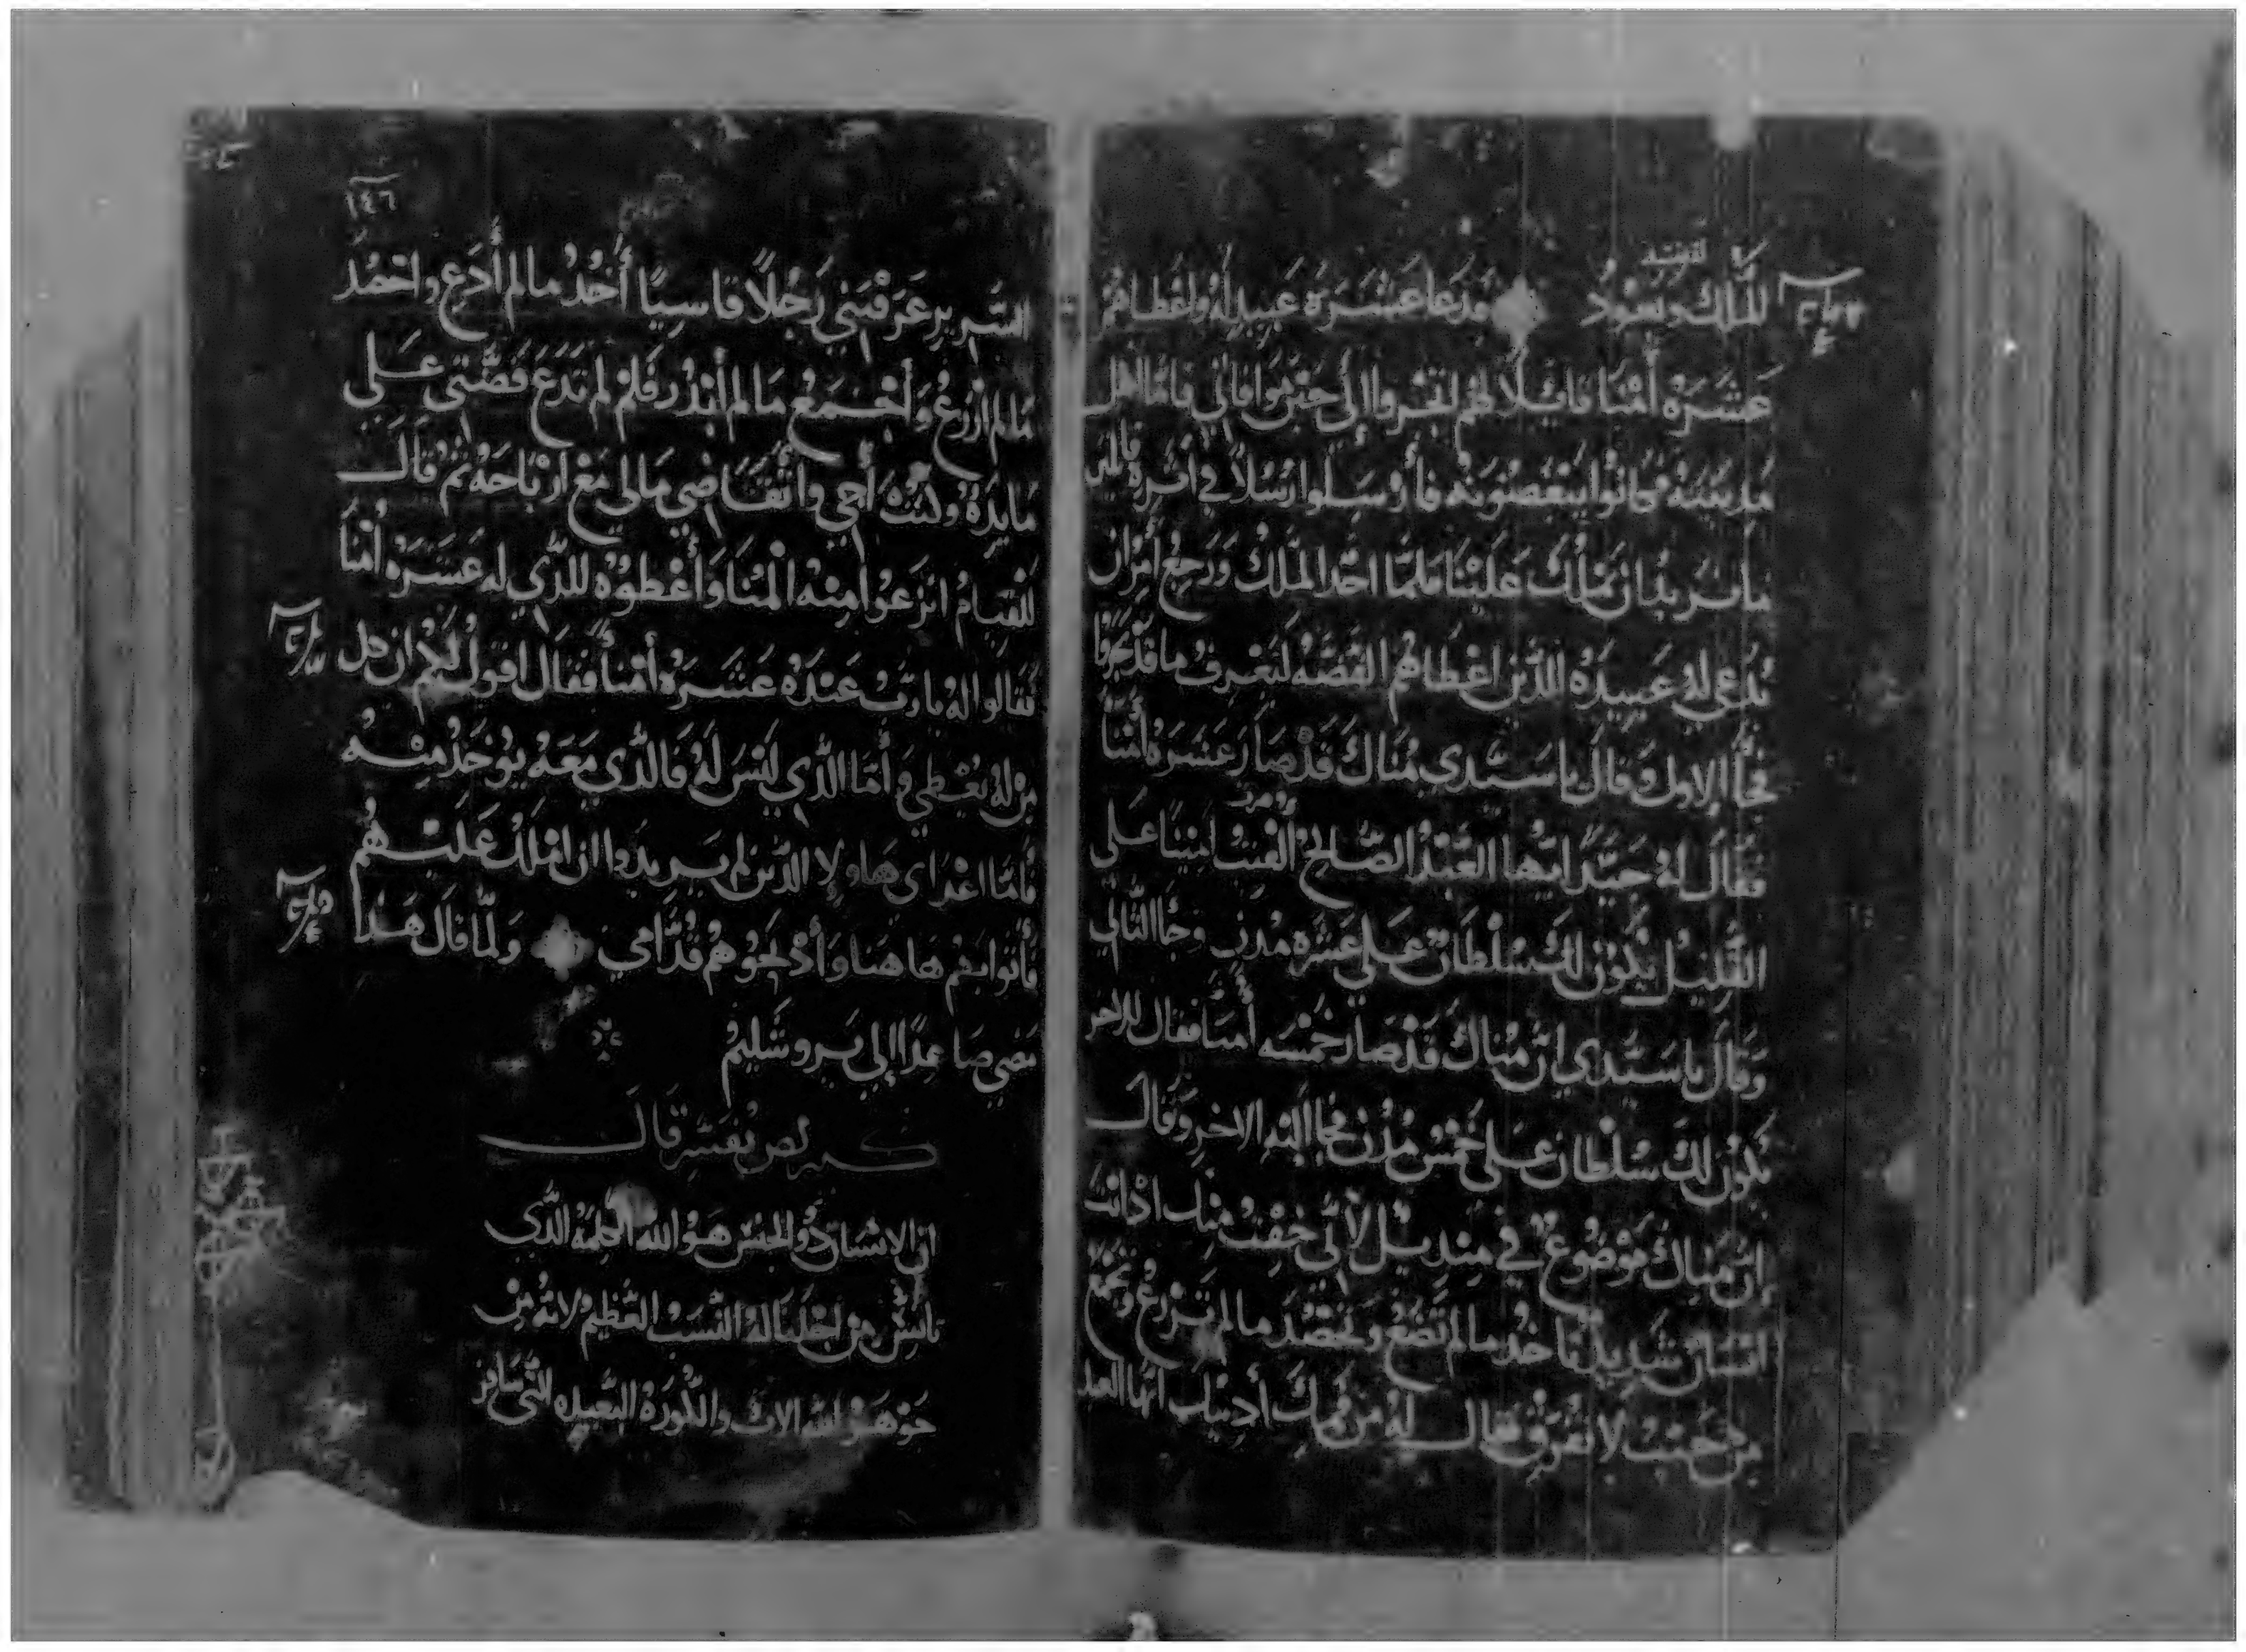 لنفسه
للملك ويعود ودعا عشره عبيد له واعطاهم
عشره أمنا قايلا لهم اتجروا إلى حين موافاتي فاما اهل
مدينته فكانوا يبغضونه فأرسلوا رسلا في اثره قايلين
ما نريد ان يملك علينا فلما اخد الملك ورجع أمر ان
تدعى له عبيده الدين اعطاهم الفضه ليعرف ما قد تجروا
فجا الاول وقال يا سيدي مناك قد صار عشره أمنا
فقال له جيدا ايها العبد الصالح الفيت امينا على
القليل يكون لك سلطان على عشره مدن وجا الثاني
وقال يا سيدي ان مناك قد صار خمسه أمنا فقال للاخر
يكون لك سلطان على خمس مدن فجا اليه الاخر وقال
ان مناك موضوع في منديل لأني خفت منك اد انت
انسان شديد تاخد ما لم تضع وتحصد ما لم تزرع وتجمع
من حيث لا تفرق فقال له من فمك أدينك ايها العبد
١٤٦
الشرير عرفتني رجلا قاسيا أخد ما لم أدع واحصد
ما لم ازرع وأجمع ما لم أبدر فلم لم تدع فضتي على
مايده وكنت أجي واتقاضى مالي مع ارباحه ثم قال
للقيام انزعوا منه المنا وأعطوه للدي له عشره أمنا
فقالوا له يا رب عنده عشره أمنا فقال اقول لكم ان كل
من له يعطى وأما الدي ليس له فالدي معه يوخد منه
فأما اعداي هاولا الدين لم يريدوا ان املك عليهم
فأتوا بهم هاهنا وأدبحوهم قدامي ولما قال هدا
مضى صاعدا إلى يروشليم
كيرلص يفسر قال
ان الانسان دو الجنس هو الله الكلمة الدي
تأنس من اجلنا له النسب العظيم لانه من
جوهر الله الاب والكورة البعيده التي سافر